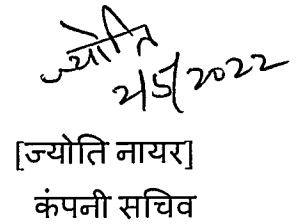 ज्योति
2/5/2022
[ज्योति नायर]
कंपनी सचिव